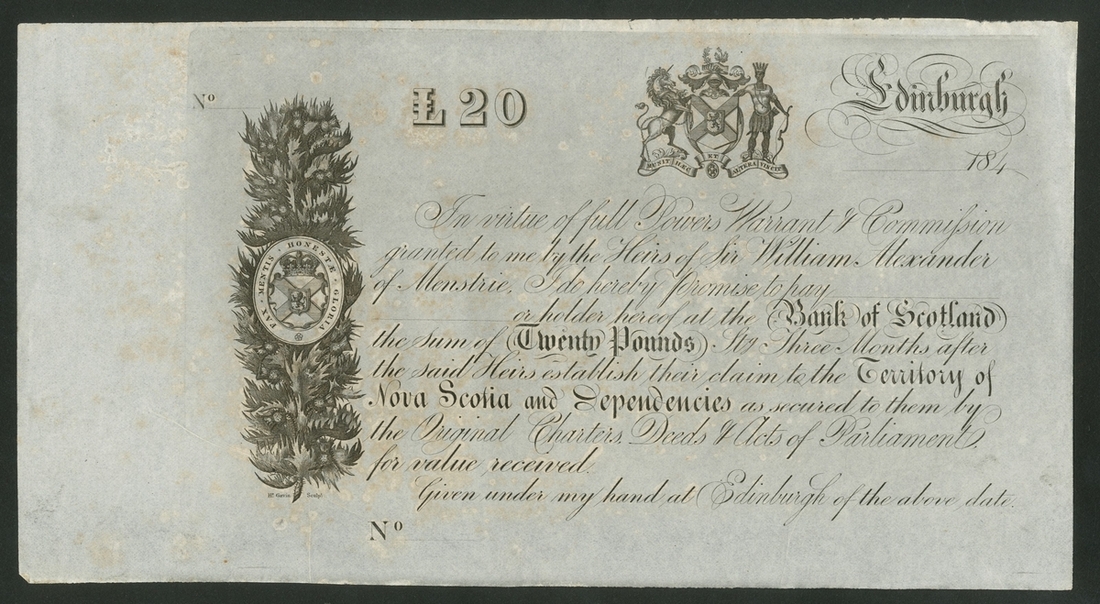 No
Ł20
MUNIT HÆC ET ALTERA VINCIT
Edinburgh
184
In virtue of full Powers Warrant & Commiſsion
granted to me by the Heirs of Sir William Alexander
of Menstrie, I do hereby promise to pay
or holder hereof at the Bank of Scotland
the sum of Twenty Pounds Stg Three Months after
the said Heirs establish their claim to the Territory of
Nova Scotia and Dependencies as secured to them by
the Original Charters, Deeds & Acts of Parliament,
for value received.
Given under my hand at Edinburgh of the above date.
No
FAX · MENTIS · HONESTÆ · GLORIA
Gavin Sculpt